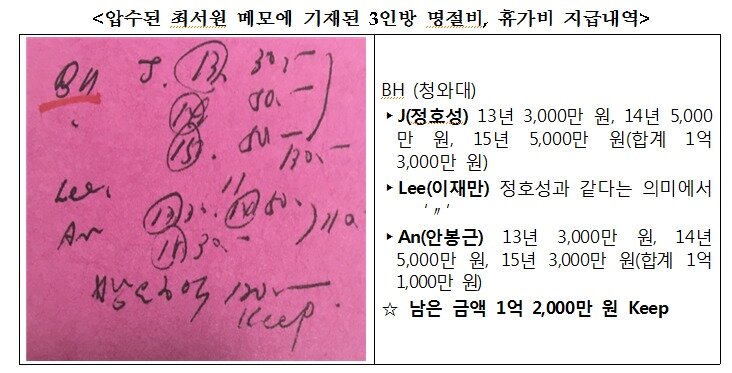 <압수된 최서원 메모에 기재된 3인방 명절비, 휴가비 지급내역>
BH J. 13. 30.-
14 50.-
15. 50.-
130.-
Lee, 〃
An 13 30- 14 50.-
15 30.-
110
남은 120.-
Keep.
BH (청와대)
▸J(정호성) 13년 3,000만 원, 14년 5,000
만 원, 15년 5,000만 원(합계 1억
3,000만 원)
▸Lee(이재만) 정호성과 같다는 의미에서
‘〃’
▸An(안봉근) 13년 3,000만 원, 14년
5,000만 원, 15년 3,000만 원(합계 1억
1,000만 원)
☆ 남은 금액 1억 2,000만 원 Keep